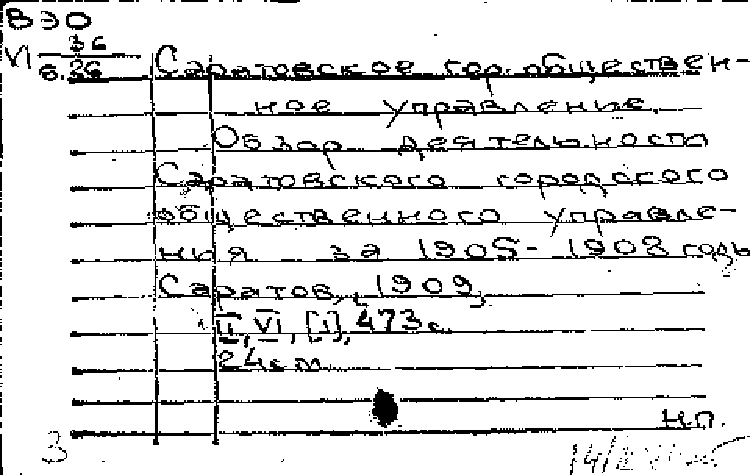 ВЭО
VI 36
6.36
Саратовское гор. обществен-
ное управление.
Обзор деятельности
Саратовского городского
общественного управле-
ния за 1905-1908 годы
Саратов, 1909,
II, VI, [1], 473 с.
24 см
нп.
3